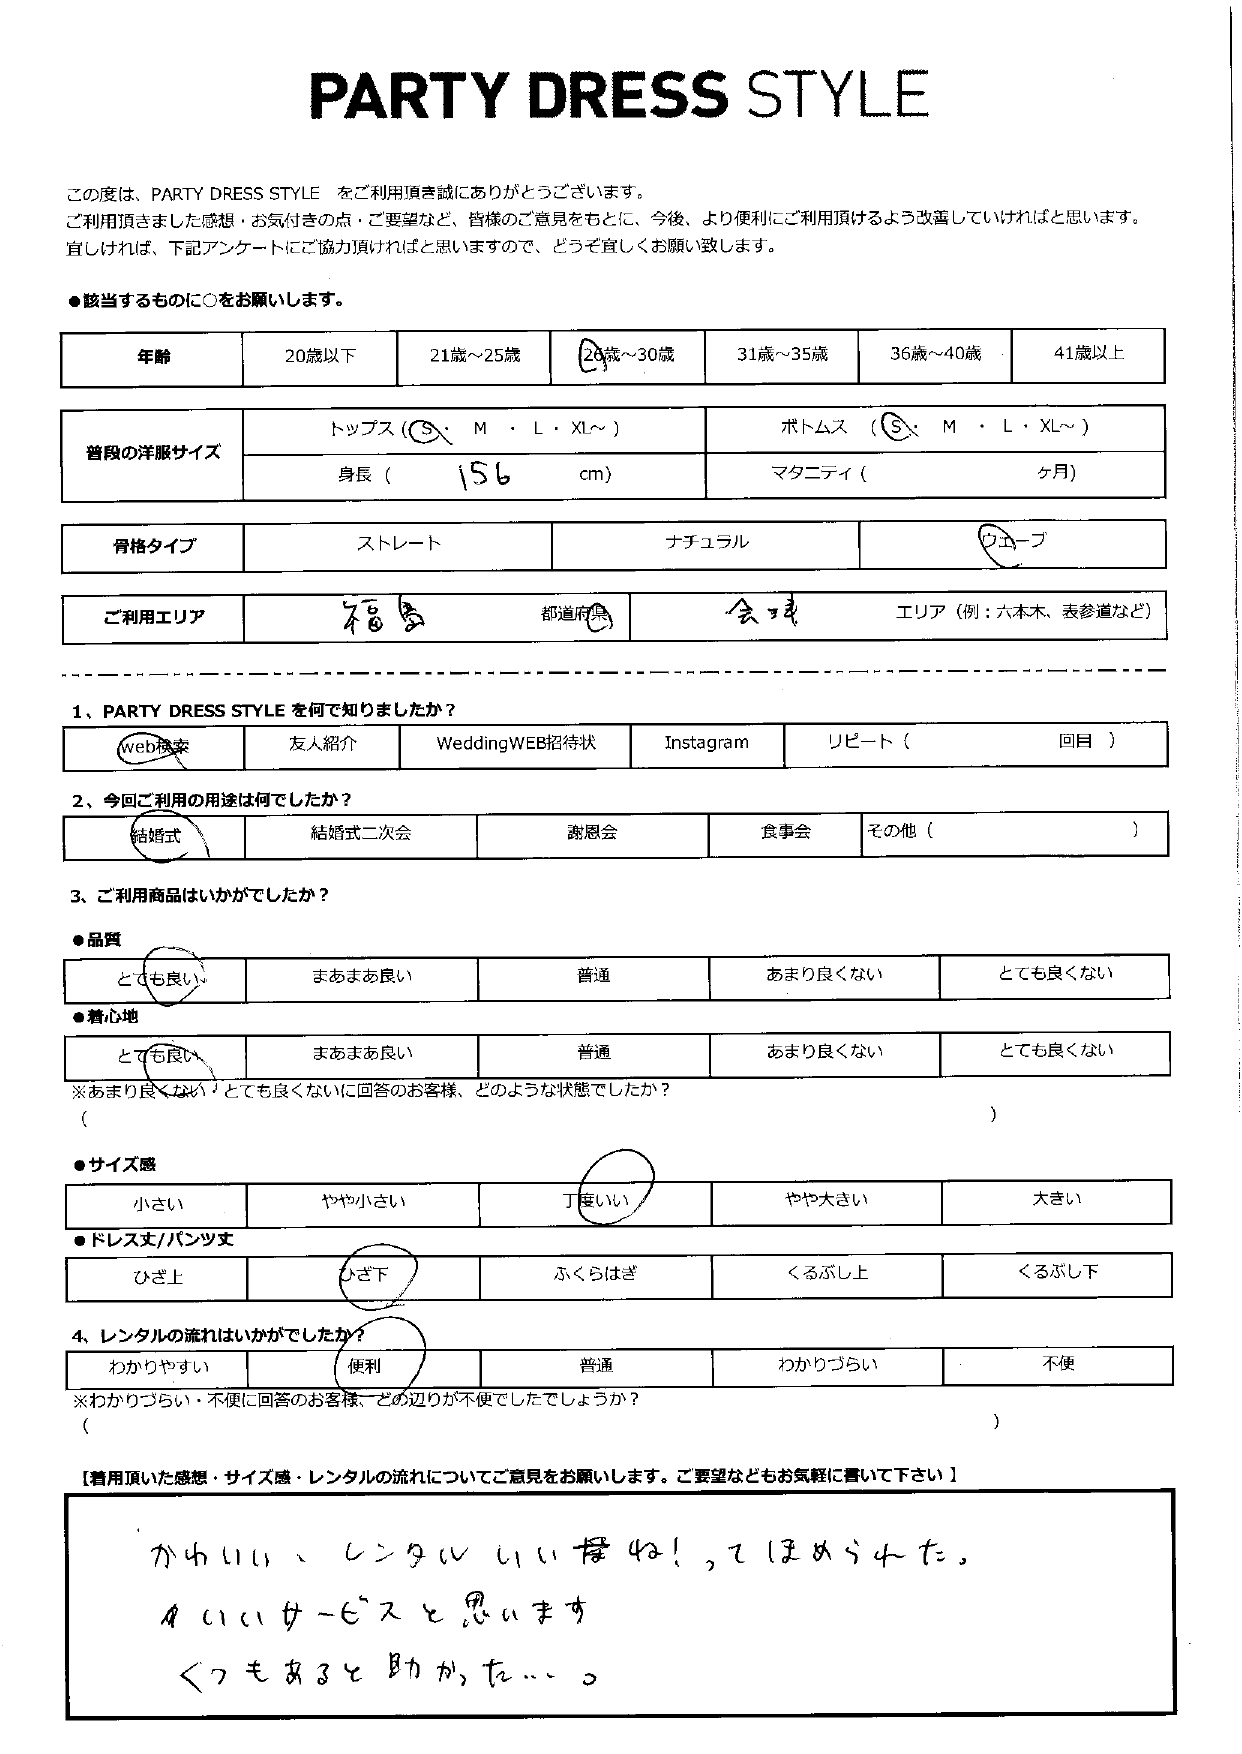 PARTY DRESS STYLE
この度は、PARTY DRESS STYLE　をご利用頂き誠にありがとうございます。
ご利用頂きました感想・お気付きの点・ご要望など、皆様のご意見をもとに、今後、より便利にご利用頂けるよう改善していければと思います。
宜しければ、下記アンケートにご協力頂ければと思いますので、どうぞ宜しくお願い致します。
●該当するものに○をお願いします。
年齢 20歳以下 21歳～25歳 26歳～30歳 31歳～35歳 36歳～40歳 41歳以上
普段の洋服サイズ トップス (S・ M ・ L・ XL～ ) ボトムス (S・ M ・ L・XL～ )
身長 ( 156 cm) マタニティ ( ヶ月)
骨格タイプ ストレート ナチュラル ウエーブ
ご利用エリア 福島 都道府県 会津 エリア（例：六本木、表参道など）
1、PARTY DRESS STYLE を何で知りましたか？
web検索 友人紹介 WeddingWEB招待状 Instagram リピート ( 回目 )
2、今回ご利用の用途は何でしたか？
結婚式 結婚式二次会 謝恩会 食事会 その他 ( )
3、ご利用商品はいかがでしたか？
●品質
とても良い まあまあ良い 普通 あまり良くない とても良くない
●着心地
とても良い まあまあ良い 普通 あまり良くない とても良くない
※あまり良くない・とても良くないに回答のお客様、どのような状態でしたか？
( )
●サイズ感
小さい やや小さい 丁度いい やや大きい 大きい
●ドレス丈/パンツ丈
ひざ上 ひざ下 ふくらはぎ くるぶし上 くるぶし下
4、レンタルの流れはいかがでしたか？
わかりやすい 便利 普通 わかりづらい 不便
※わかりづらい・不便に回答のお客様、どの辺りが不便でしたでしょうか？
( )
【着用頂いた感想・サイズ感・レンタルの流れについてご意見をお願いします。ご要望などもお気軽に書いて下さい 】
かわいい、レンタルいいね！ってほめられた。
いいサービスと思います
くつもあると助かった…。